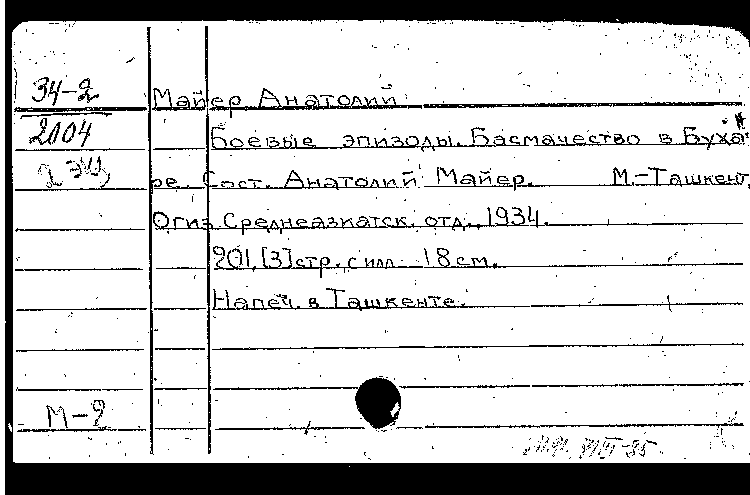 34-2
Майер Анатолий
2004
Боевые эпизоды. Басмачество в Буха-
2 экз
ре. Сост. Анатолий Майер. М.-Ташкент,
Огиз. Среднеазиатск. отд., 1934.
201, [3] стр. с илл. 18 см.
Напеч. в Ташкенте.
М-2